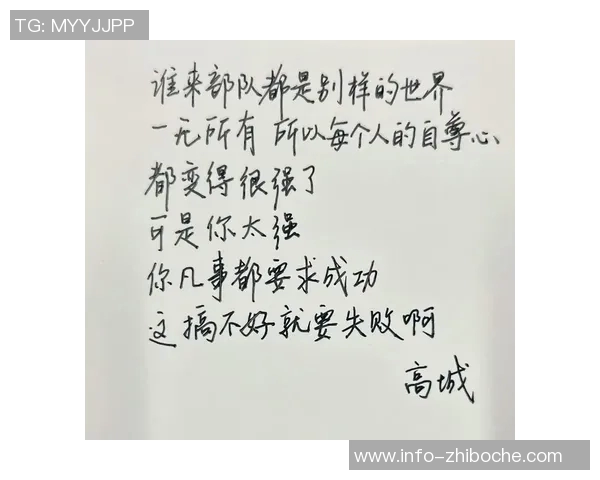 TG: MYYJJPP
谁来部队都是别样的世界
一无所有 所以每个人的自尊心
都变得很强了
可是你太强
你凡事都要求成功
这搞不好就要失败啊
高城
www.info-zhiboche.com